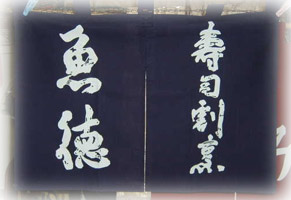 寿司割烹
魚徳